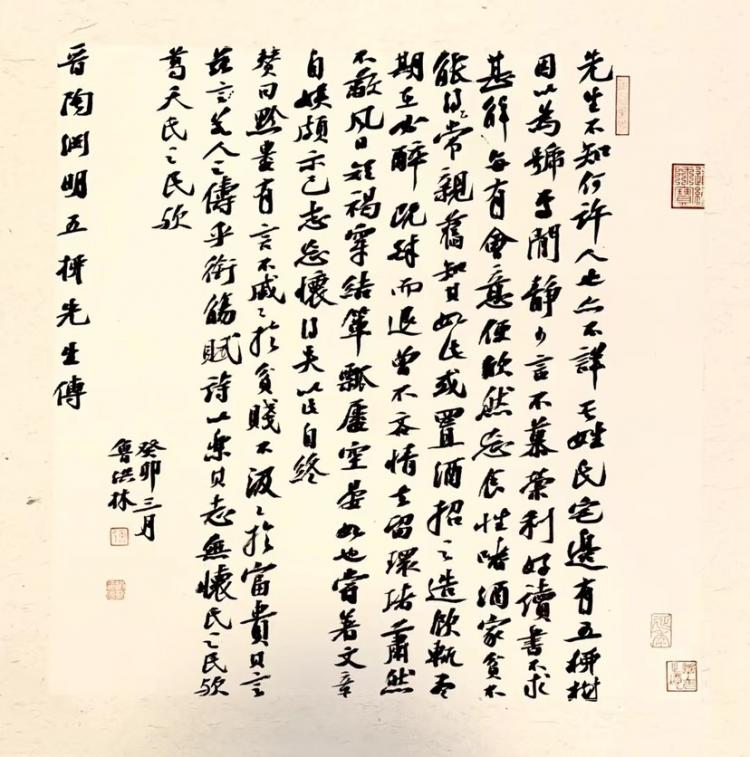 先生不知何許人也亦不詳其姓氏宅邊有五柳樹
因以為號焉閒靜少言不慕榮利好讀書不求
甚解每有會意便欣然忘食性嗜酒家貧不
能得常親舊知其如此或置酒招之造飲輒盡
期在必醉既醉而退曾不吝情去留環堵蕭然
不蔽風日短褐穿結簞瓢屢空晏如也嘗著文章
自娛頗示己志忘懷得失以此自終
贊曰黔婁有言不戚〻於貧賤不汲〻於富貴其言
茲言若人之儔乎銜觴賦詩以樂其志無懷氏之民歟
葛天氏之民歟
晉陶淵明五柳先生傳
癸卯三月
魯洪林